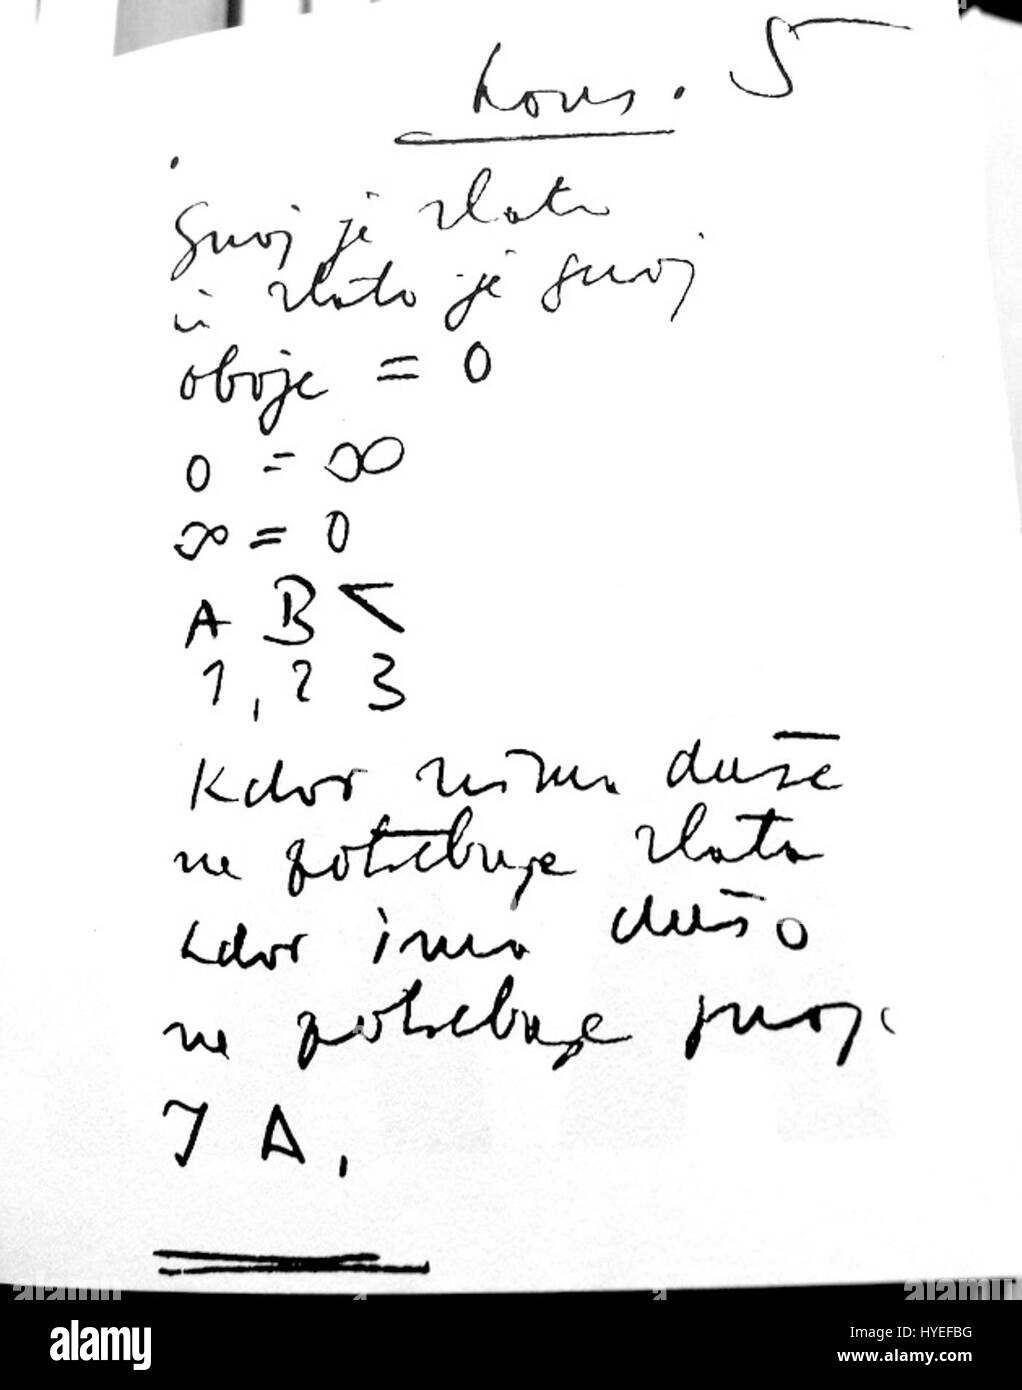 Kons. 5
Gnoj je zlato
in zlato je gnoj
oboje = 0
0 = ∞
∞ = 0
A B <
1, 2 3
Kdor nima duše
ne potrebuje zlata
kdor ima dušo
ne potrebuje gnoja
I A,
alamy
alamy
a
a
alamy stock photo
HYEFBG
www.alamy.com